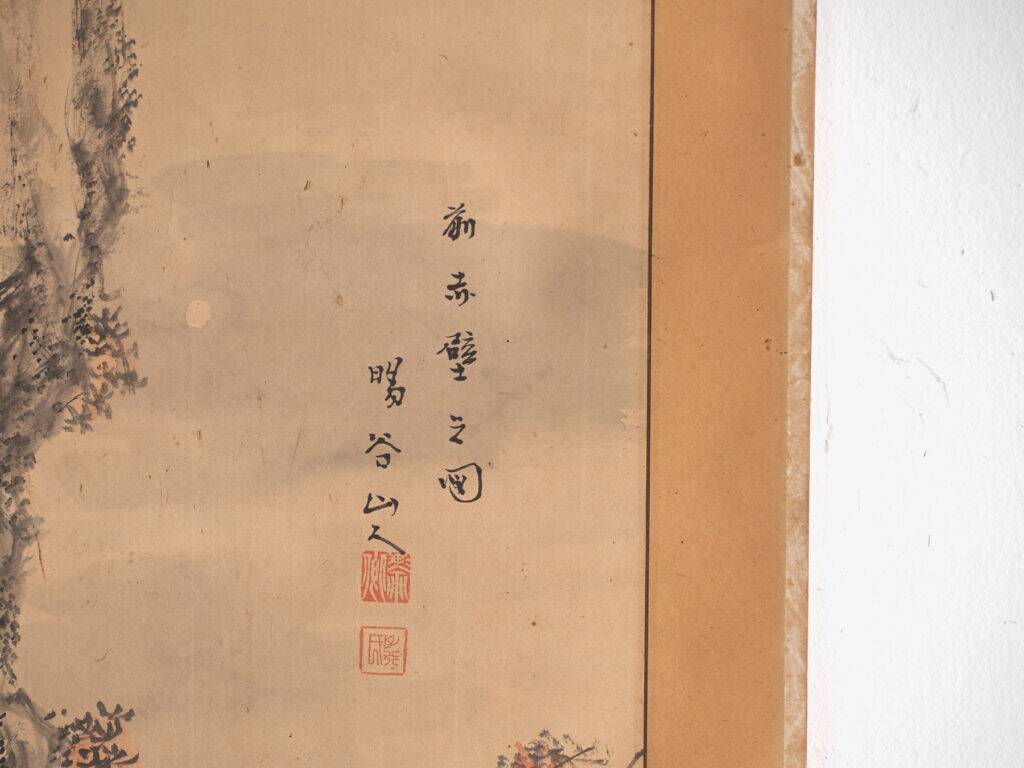 前赤壁之図
暘谷山人